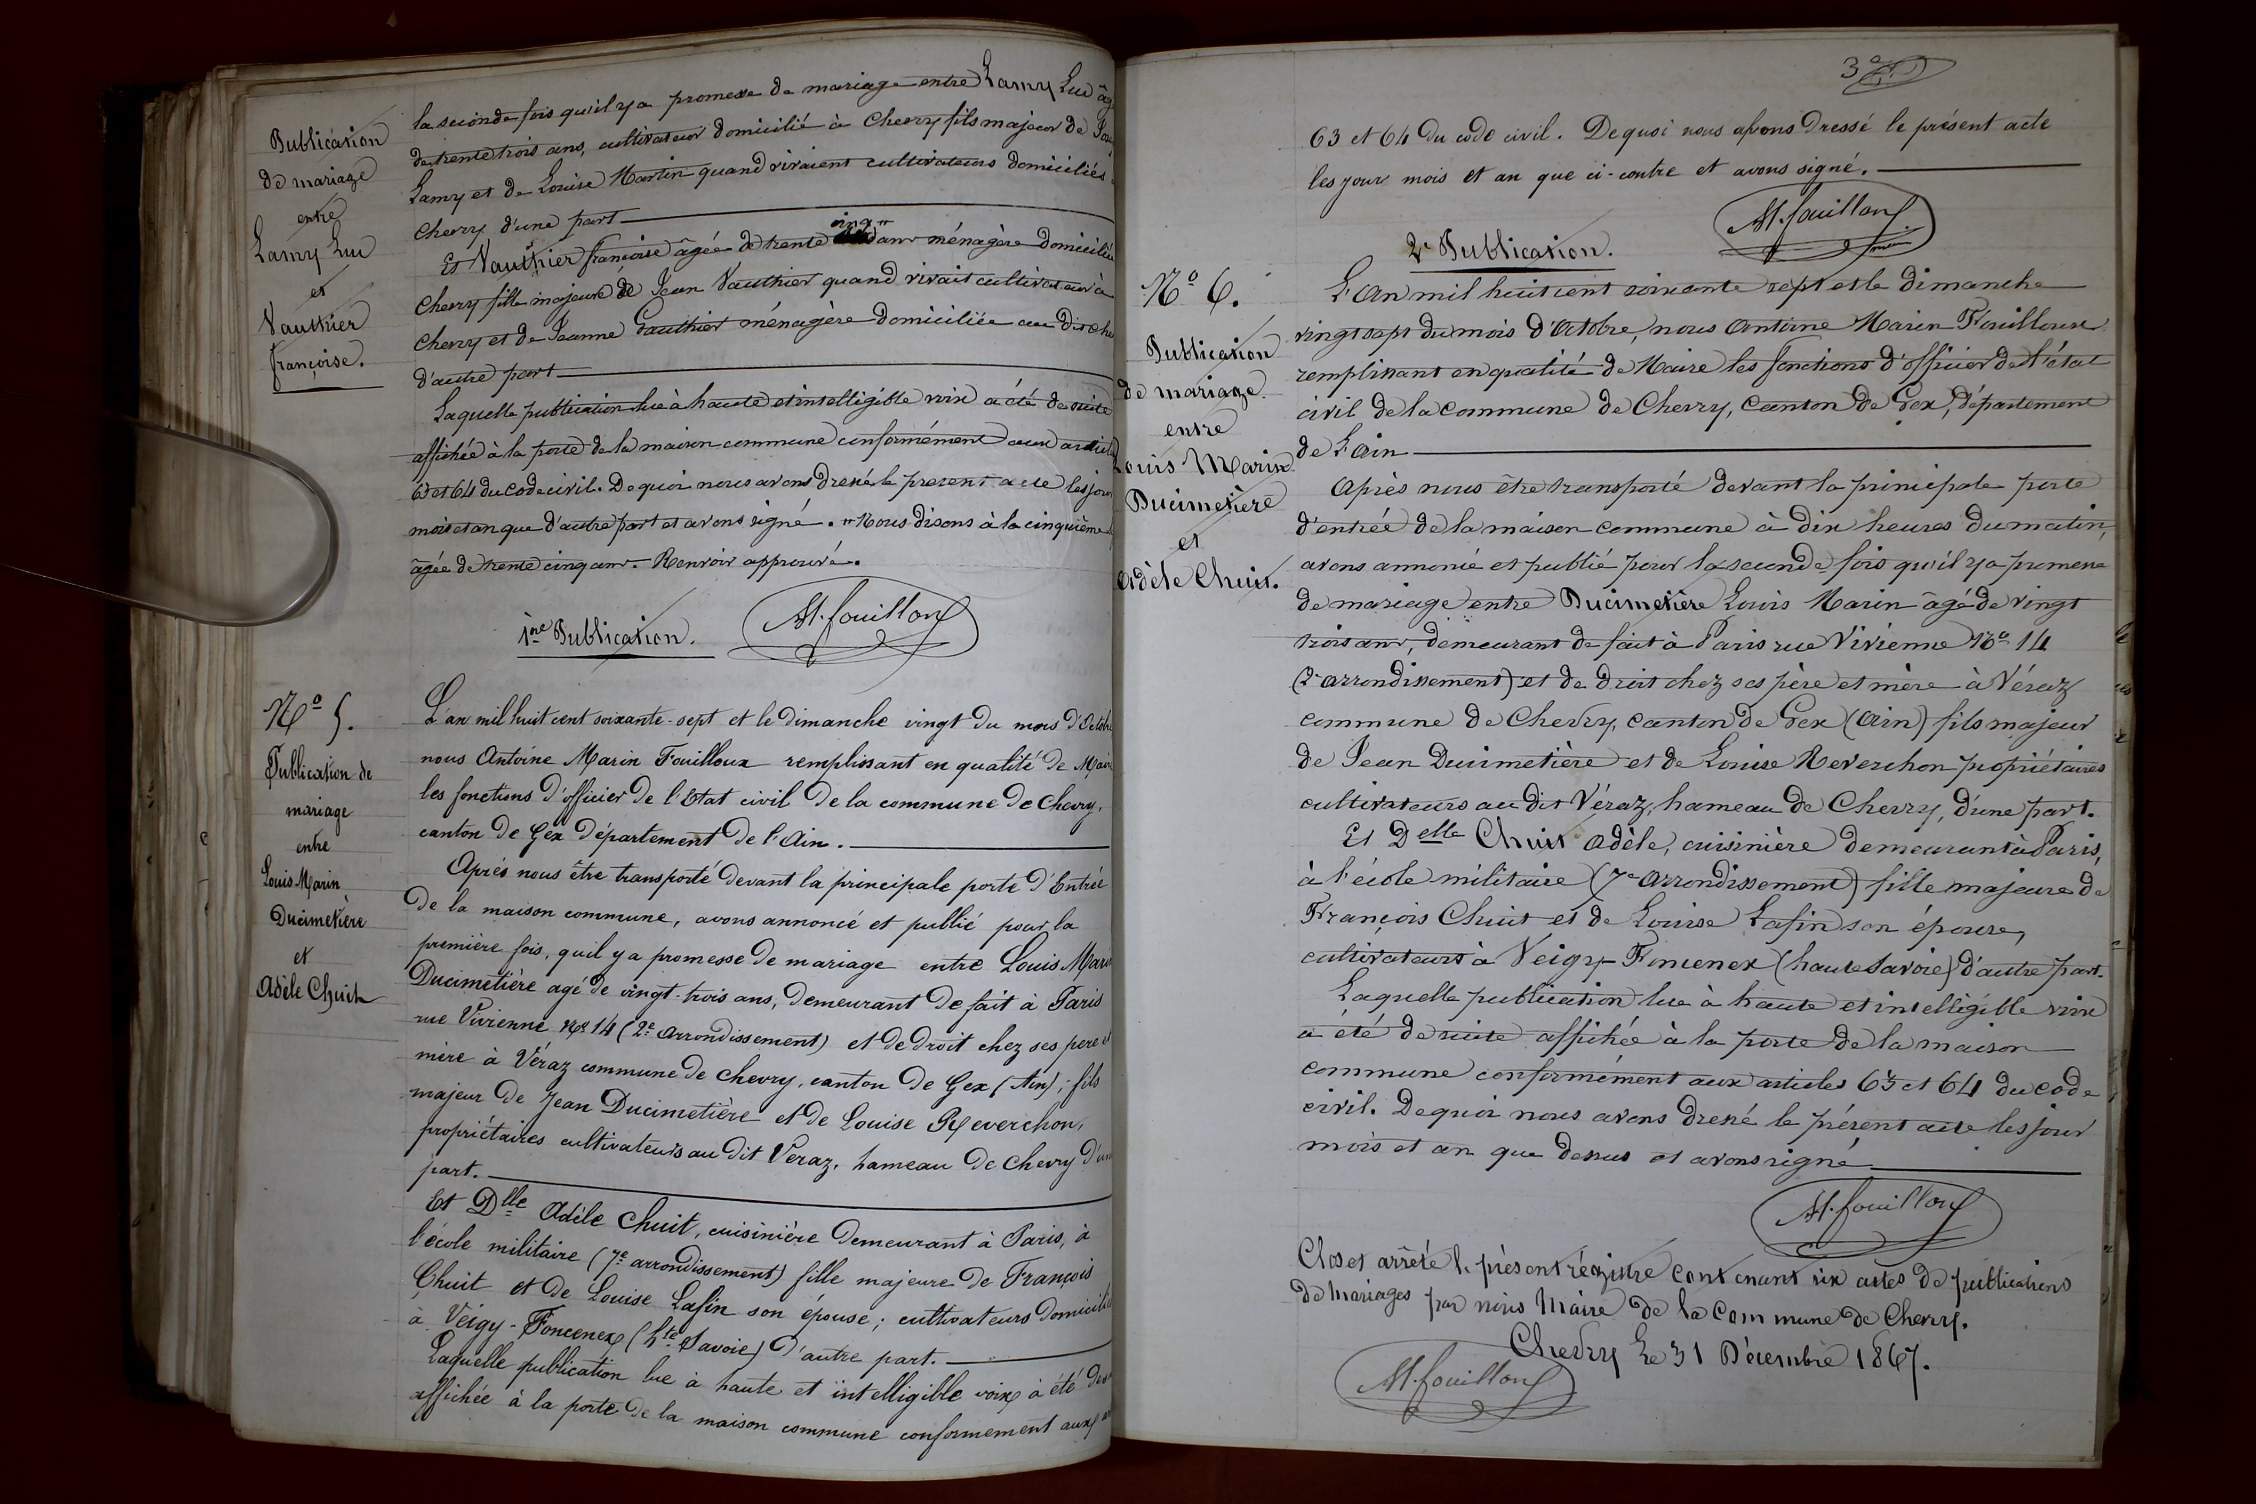 Publication
de mariage
entre
Lamy Luc
et
Vauthier
françoise.
la seconde fois qu'il y a promesse de mariage entre Lamy Luc âg
de trente trois ans, cultivateur domicilié à Chevry fils majeur de
Lamy et de Louise Martin quand vivaient cultivateurs domiciliés
Chevry d'une part
Et Vauthier françoise âgée de trente cinq " ans ménagère domiciliée
Chevry fille majeure de Jean Vauthier quand vivait cultivateur à
Chevry et de Jeanne Gauthier ménagère domiciliée au dit Che
d'autre part
Laquelle publication lue à haute et intelligible voix a été de suite
affichée à la porte de la maison commune conformément aux articles
63 et 64 du code civil. De quoi nous avons dressé le présent acte les jour
mois et an que d'autre part et avons signé. " Nous disons à la cinquième
âgée de trente cinq ans. Renvoir approuvé.
AM. fouilloux
1re Publication.
No 5.
Publication de
mariage
entre
Louis Marin
Ducimetière
et
Adèle Chuit
L'an mil huit cent soixante-sept et le dimanche vingt du mois d'Octobre
nous Antoine Marin Fouilloux remplissant en qualité de Maire
les fonctions d'officier de l'Etat civil de la commune de Chevry,
canton de Gex département de l'Ain.
Après nous être transporté devant la principale porte d'Entrée
de la maison commune, avons annoncé et publié pour la
première fois, qu'il y a promesse de mariage entre Louis Marin
Ducimetière agé de vingt-trois ans, demeurant de fait à Paris
rue Vivienne No 14 (2e arrondissement) et de droit chez ses pere et
mère à Véraz commune de Chevry, canton de Gex (Ain); fils
majeur de Jean Ducimetière et de Louise Reverchon,
propriétaires cultivateurs au dit Véraz, hameau de Chevry d'une
part.
Et Dlle Adèle Chuit, cuisinière demeurant à Paris, à
l'école militaire (7e arrondissement) fille majeure de François
Chuit et de Louise Lafin son épouse; cultivateurs domiciliés
à Veigy-Foncenex (Hte Savoie) d'autre part.
Laquelle publication lue à haute et intelligible voix à été de
affichée à la porte de la maison commune conformement aux
3e
63 et 64 du code civil. De quoi nous avons Dressé le présent acte
les jour mois et an que ci-contre et avons signé.
AM. fouilloux
2e Publication.
No 6.
Publication
de mariage
entre
Louis Marin
Ducimetière
et
Adèle Chuit.
L'An mil huit cent soixante sept et le dimanche
vingt sept du mois d'Octobre, nous Antoine Marin Fouilloux
remplissant en qualité de Maire les fonctions d'officier de l'état
civil de la commune de Chevry, canton de Gex, département
de l'Ain
Après nous être transporté devant la principale porte
d'entrée de la maison commune à dix heures du matin,
avons annoncé et publié pour la seconde fois qu'il y a promesse
de mariage entre Ducimetière Louis Marin âgé de vingt
trois ans, demeurant de fait à Paris rue Vivienne No 14
(2e arrondissement) et de droit chez ses père et mère à Véraz
commune de Chevry, canton de Gex (Ain) fils majeur
de Jean Ducimetière et de Louise Reverchon propriétaires
cultivateurs au dit Véraz, hameau de Chevry, d'une part.
Et Delle Chuit Adèle, cuisinière demeurant à Paris,
à l'école militaire (7e arrondissement) fille majeure de
François Chuit et de Louise Lafin son épouse,
cultivateurs à Veigy-Foncenex (haute Savoie) d'autre part.
Laquelle publication lue à haute et intelligible voix
a été de suite affichée à la porte de la maison
commune conformément aux articles 63 et 64 du code
civil. De quoi nous avons dressé le présent acte les jour
mois et an que dessus et avons signé
AM. fouilloux
Clos et arrêté le présent régistre contenant six actes de publications
de mariages par nous Maire de la commune de Chevry.
Chevry le 31 Décembre 1867.
AM. fouilloux